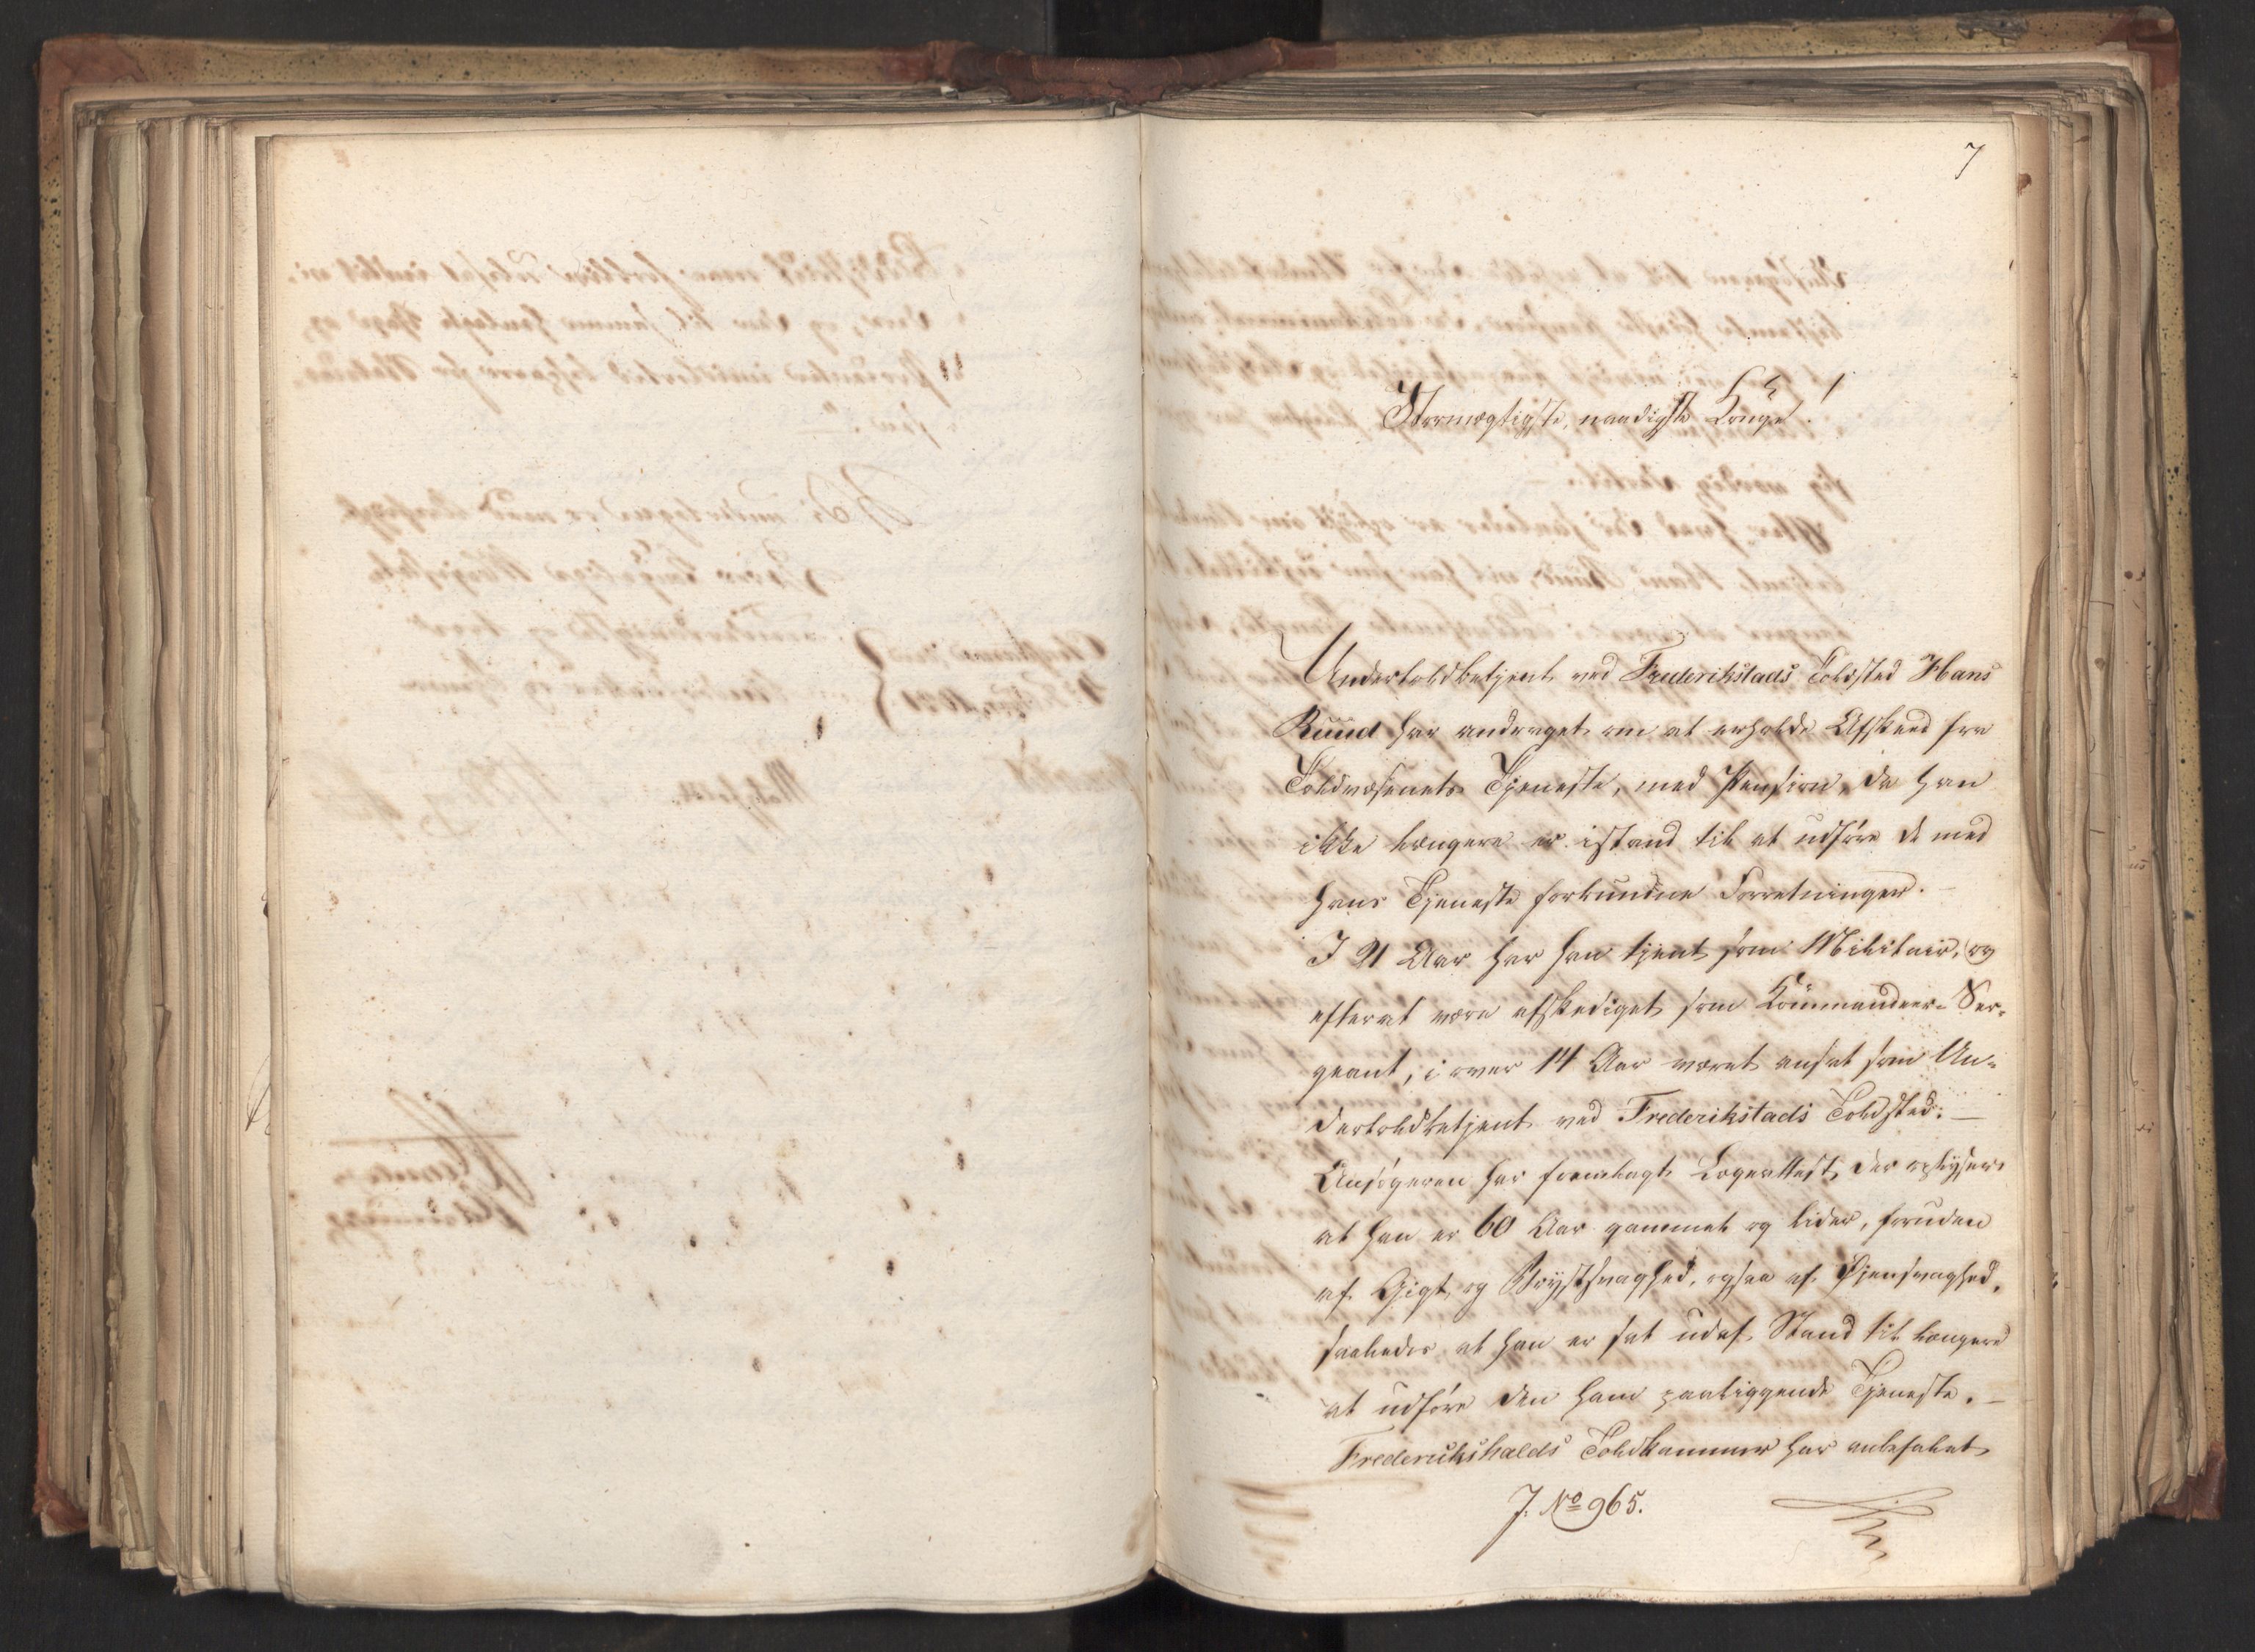 7
Stormægtigste, naadigste Konge!
Undertoldbetjent ved Frederikstads Toldsted Hans
Ruud har andraget om at erholde Afskeed fra
Toldvæsenets Tjeneste, med Pension, da han
ikke længere er istand til at udføre de med
hans Tjeneste forbundne Forretninger. -
I 21 Aar har han tjent som Militair, og
efterat være afskediget som Kommandeer-Ser-
geant, i over 14 Aar været ansat som Un-
dertoldbetjent ved Frederikstads Toldsted. -
Ansøgeren har fremlagt Lægeattest, der oplyser
at han er 60 Aar gammel og lider, foruden
af Gigt og Brystsvaghed, ogsaa af Øiensvaghed,
saaledes at han er sat udaf Stand til længere
at udføre den ham paaliggende Tjeneste. -
Frederikshalds Toldkammer har anbefalet
J. No 965.